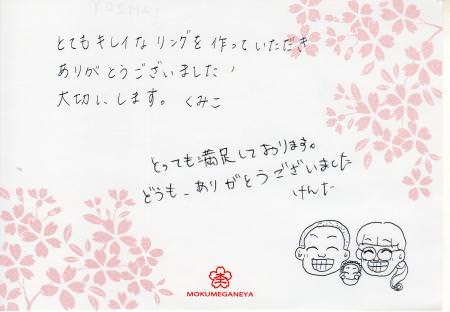 とてもキレイなリングを作っていただき
ありがとうございました!
大切にします。 くみこ
とっても満足しております。
どうも、ありがとうございました
けんた
MOKUMEGANEYA